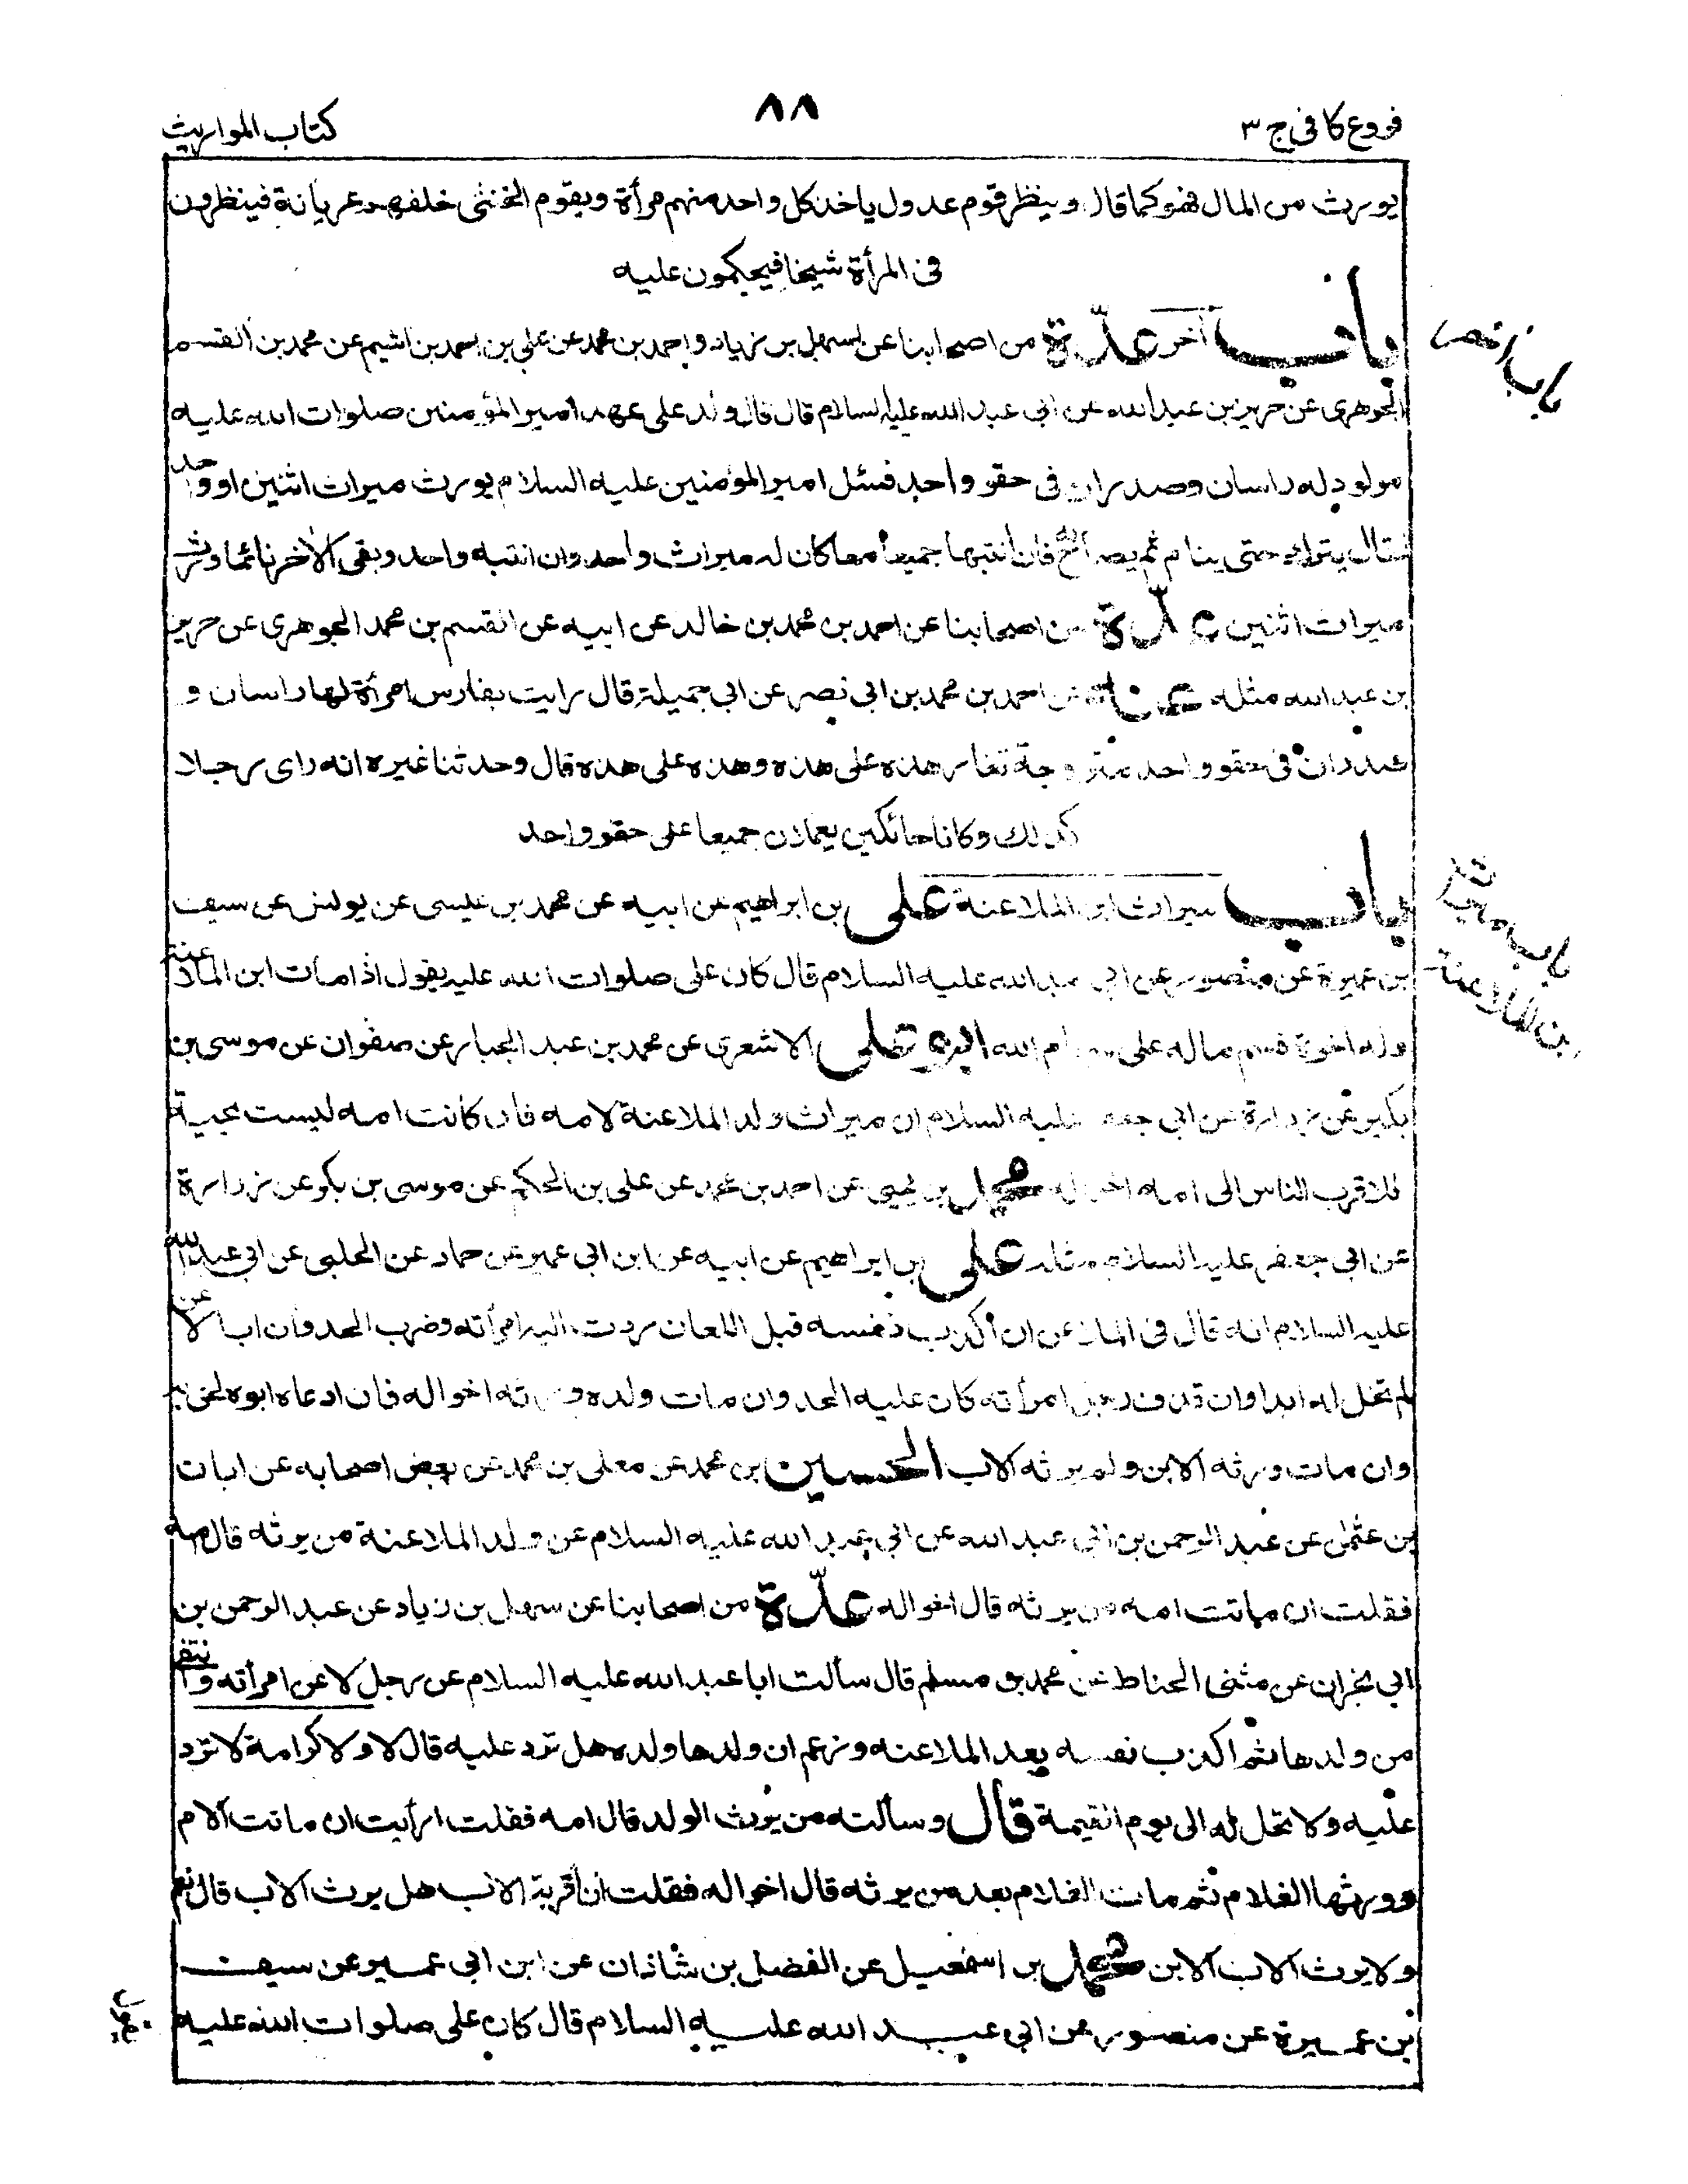 فروع كافى ج ٣
٨٨
كتاب المواريث
يورث من المال فهو كما قال وينظر قوم عدول ياخذ كل واحد منهم مرأة ويقوم الخنثى خلفهم عريانة فينظرون
فى المرأة شبحا فيحكمون عليه
باب آخر عدّة من اصحابنا عن سهل بن زياد و احمد بن محمد عن علي بن احمد بن اشيم عن محمد بن القسم
الجوهرى عن حريز بن عبد الله عن ابى عبد الله عليه السلام قال قال ولد على عهد امير المؤمنين صلوات الله عليه
مولود له راسان وصدران فى حقو واحد فسئل امير المؤمنين عليه السلام يورث ميراث اثنين او واحد
فقال يترك حتى ينام ثم يصاح فان انتبها جميعا معا كان له ميراث واحد وان انتبه واحد وبقى الاخر نائما ورث
ميراث اثنين عدّة من اصحابنا عن احمد بن محمد بن خالد عن ابيه عن القسم بن محمد الجوهرى عن حريز
بن عبد الله مثله عنه عن احمد بن محمد بن ابى نصر عن ابى جميلة قال رايت بفارس امرأة لها راسان و
صدران فى حقو واحد متزوجة تغار هذه على هذه وهذه على هذه قال وحدثنا غيره انه راى رجلا
كذلك وكانا حائكين يعملان جميعا على حقو واحد
باب ميراث ابن الملاعنة على بن ابراهيم عن ابيه عن محمد بن عيسى عن يونس عن سيف
بن عميرة عن منصور عن ابى عبد الله عليه السلام قال كان على صلوات الله عليه يقول اذا مات ابن الملاعنة
وله اخوة قسم ماله على سهام الله ابو على الاشعرى عن محمد بن عبد الجبار عن صفوان عن موسى بن
بكير عن زرارة عن ابى جعفر عليه السلام ان ميراث ولد الملاعنة لامه فان كانت امه ليست بحية
فلاقرب الناس الى امه اخواله محمد بن يحيى عن احمد بن محمد عن على بن الحكم عن موسى بن بكر عن زرارة
عن ابى جعفر عليه السلام مثله على بن ابراهيم عن ابيه عن ابن ابى عمير عن حماد عن الحلبى عن ابى عبد الله
عليه السلام انه قال فى الملاعن ان اكذب نفسه قبل اللعان ردت اليه امرأته وضرب الحد وان ابى لاعن
لم تحل له ابدا وان قذف رجل امرأته كان عليه الحد وان مات ولده ورثه اخواله فان ادعاه ابوه لحق به
وان مات ورثه الابن ولم يرثه الاب الحسين بن محمد عن معلى بن محمد عن بعض اصحابه عن ابان
بن عثمن عن عبد الرحمن بن ابى عبد الله عن ابى عبد الله عليه السلام عن ولد الملاعنة من يرثه قال امه
فقلت ان ماتت امه من يرثه قال اخواله عدّة من اصحابنا عن سهل بن زياد عن عبد الرحمن بن
ابى نجران عن مثنى الحناط عن محمد بن مسلم قال سألت ابا عبد الله عليه السلام عن رجل لاعن امرأته وانتفى
من ولدها ثم اكذب نفسه بعد الملاعنه وزعم ان ولدها ولده هل ترد عليه قال لا ولا كرامة لا ترد
عليه ولا تحل له الى يوم القيمة قال وسألته من يورث الولد قال امه فقلت ارأيت ان ماتت الام
وورثها الغلام ثم مات الغلام بعد من يرثه قال اخواله فقلت ان اقر به الاب هل يرث الاب قال نعم
ولا يرث الاب الابن محمد بن اسمعيل عن الفضل بن شاذان عن ابن ابى عمير عن سيف
بن عميرة عن منصور عن ابى عبد الله عليه السلام قال كان على صلوات الله عليه
باب آخر
باب ميراث
ابن الملاعنة